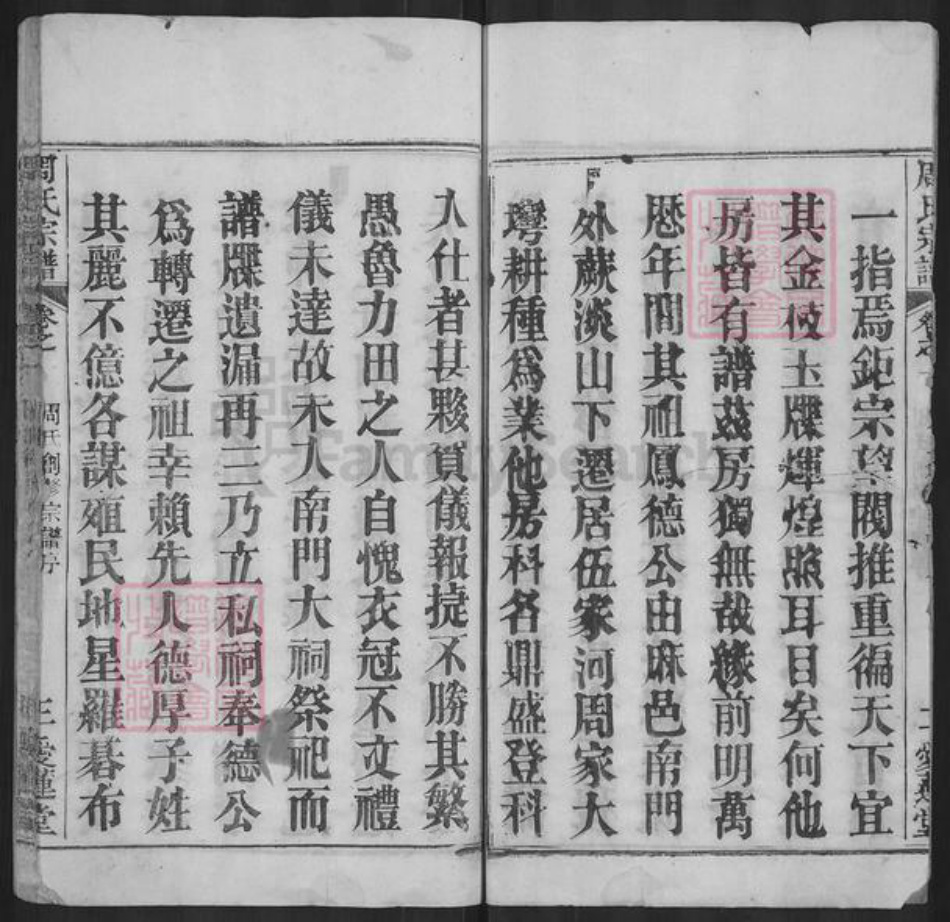 周氏宗譜
一指焉鉅宗望閥推重徧天下宜
其金枝玉牒輝煌照耳目矣何他
房皆有譜茲房獨無哉緣前明萬
厯年間其祖鳳德公由麻邑南門
外蕨淡山下遷居伍家河周家大
灣耕種爲業他房科名鼎盛登科
入仕者甚夥賀儀報捷不勝其繁
愚魯力田之人自愧衣冠不文禮
儀未達故未入南門大祠祭祀而
譜牒遺漏再三乃立私祠奉德公
爲轉遷之祖幸賴先人德厚子姓
其麗不億各謀雍民地星羅碁布
周氏宗譜 卷之一 周氏創修宗譜序 三 愛蓮堂
FamilySearch